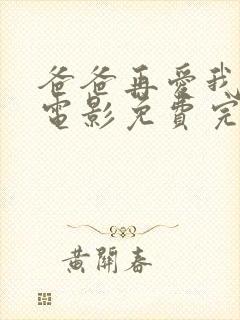 爸爸再愛我
電影免費完
黃開春